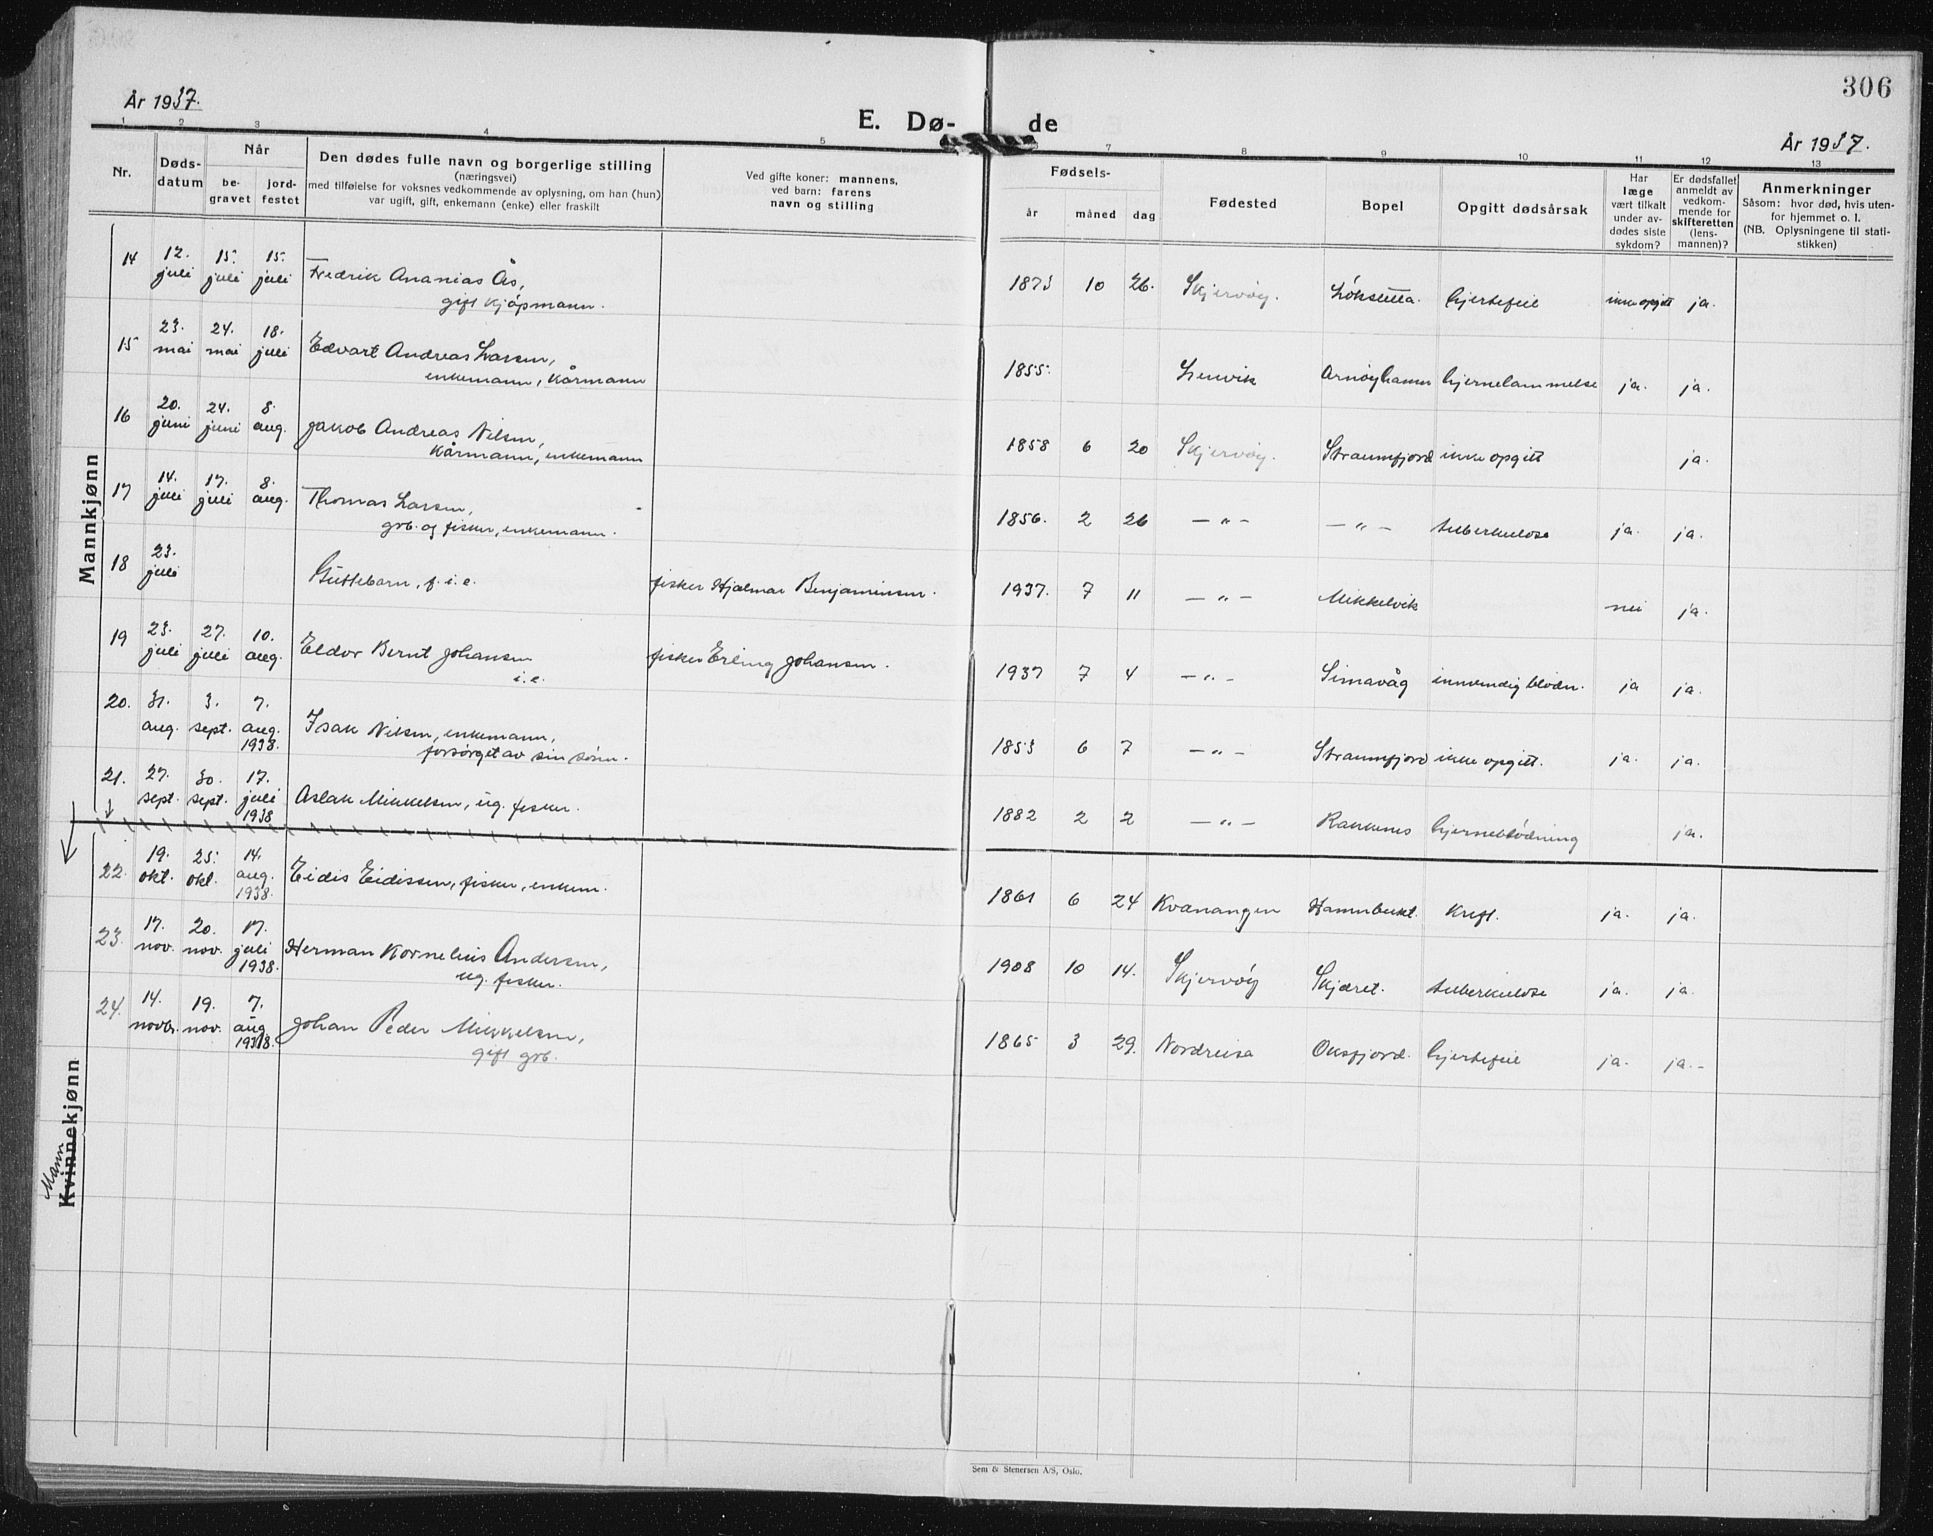 306
År 1937.
E. Dø- de
År 1937.
1 2 3 4 5 7 8 9 10 11 12 13
Nr.
Døds-
datum
Når
be-
gravet
jord-
festet
Den dødes fulle navn og borgerlige stilling
(næringsvei)
med tilføielse for voksnes vedkommende av oplysning, om han (hun)
var ugift, gift, enkemann (enke) eller fraskilt
Ved gifte koner: mannens,
ved barn: farens
navn og stilling
Fødsels-
år måned dag
Fødested
Bopel
Opgitt dødsårsak
Har
læge
vært tilkalt
under av-
dødes siste
sykdom?
Er dødsfallet
anmeldt av
vedkom-
mende for
skifteretten
(lens-
mannen)?
Anmerkninger
Såsom: hvor død, hvis uten-
for hjemmet o. l.
(NB. Oplysningene til stati-
stikken)
Mannkjønn
14 12. juli 15. juli 15. juli Fredrik Ananias Ås, 1873 10 26. Skjervøy. Løksletta. hjertefeil ikke opgitt ja.
gift kjøpmann.
15 23. mai 24. mai 18. juli Edvart Andreas Larsen, 1855. Lenvik Arnøyhamn hjernelammelse ja. ja.
enkemann, kårmann
16 20. juni 24. juni 8. aug. Jakob Andreas Nilsen, 1858 6 20 Skjervøy. Straumfjord ikke opgitt ja.
kårmann, enkemann
17 14. juli 17. juli 8. aug. Thomas Larsen, 1856. 2 26 — " — — " — tuberkulose ja. ja.
grb. og fisker, enkemann.
18 23. juli Guttebarn, f. i. e. fisker Hjalmar Benjaminsen. 1937. 7 11 — " — Mikkelvik nei ja.
19 23. juli 27. juli 10. aug. Eldor Bernt Johansen fisker Erling Johansen. 1937 7 4 — " — Simavåg innvendig blødn. ja ja.
i. e.
20. 31. aug. 3. sept. 7. aug. 1938. Isak Nilsen, enkemann, 1853 6 7 — " — Straumfjord ikke opgitt. ja. ja.
forsørget av sin sønn.
21. 27. sept. 30. sept. 17. juli 1938 Aslak Mikkelsen, ug. fisker. 1882 2 2 — " — Raukenes hjerneblødning ja.
22. 19. okt. 25. okt. 14. aug. 1938. Eidis Eidissen, fisker, enkem. 1861 6 24 Kvænangen Hamnbukt. Kreft. ja. ja.
23. 17. nov. 20. nov. 17. juli 1938. Herman Kornelius Andersen, 1908 10 14. Skjervøy Skjæret. tuberkulose ja. ja.
ug. fisker.
24. 14. novbr. 19. nov. 7. aug. 1938. Johan Peder Mikkelsen, 1865 3 29. Nordreisa Oksfjord. hjertefeil ja. ja.
gift grb.
Mann
Kvinnekjønn
Sem & Stenersen A/S, Oslo.